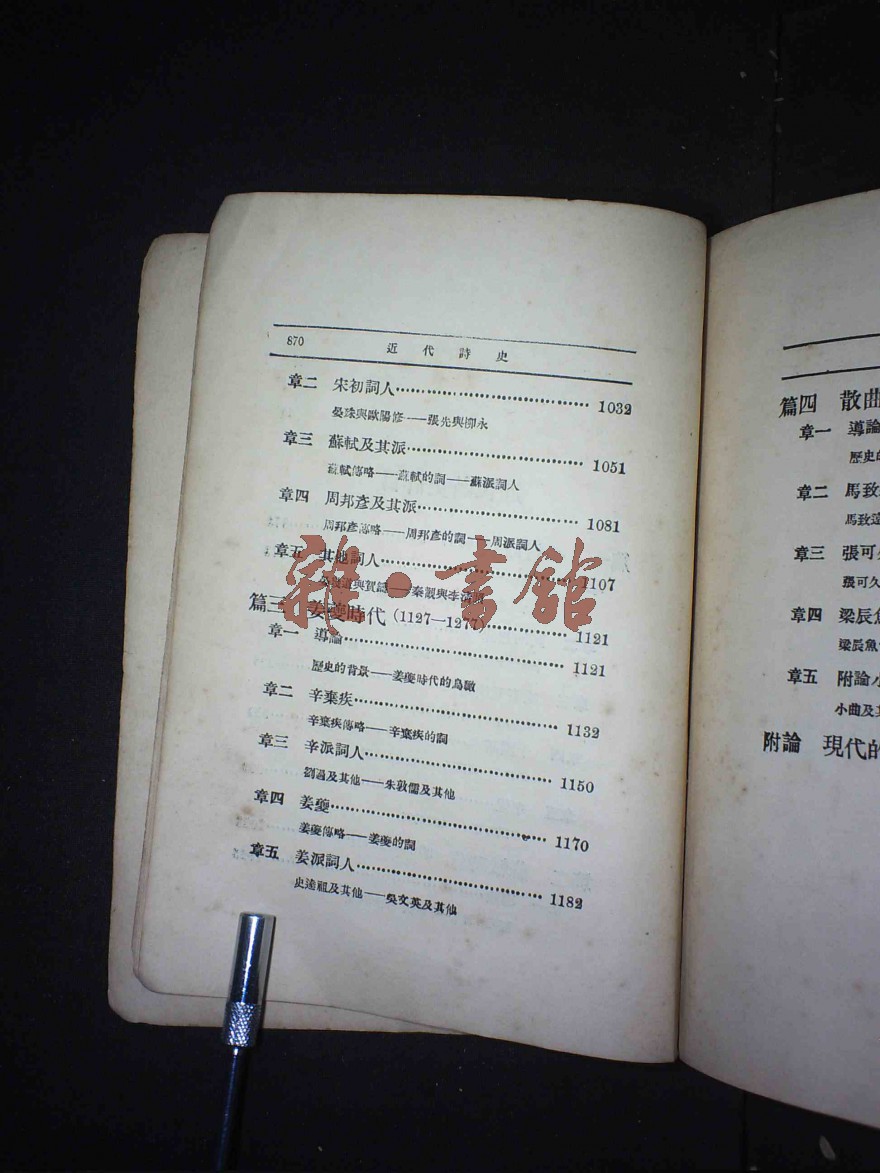 870 近代詩史
章二 宋初詞人 1032
晏殊與歐陽修——張先與柳永
章三 蘇軾及其派 1051
蘇軾傳略——蘇軾的詞——蘇派詞人
章四 周邦彥及其派 1081
周邦彥傳略——周邦彥的詞——周派詞人
章五 其他詞人 1107
晏幾道與賀鑄——秦觀與李清照
篇三 姜夔時代(1127—1277) 1121
章一 導論 1121
歷史的背景——姜夔時代的鳥瞰
章二 辛棄疾 1132
辛棄疾傳略——辛棄疾的詞
章三 辛派詞人 1150
劉過及其他——朱敦儒及其他
章四 姜夔 1170
姜夔傳略——姜夔的詞
章五 姜派詞人 1182
史達祖及其他——吳文英及其他
雜·書館
篇四 散曲
章一 導論
歷史的
章二 馬致
馬致遠
章三 張可
張可久
章四 梁辰魚
梁辰魚
章五 附論小
小曲及其
附論 現代的